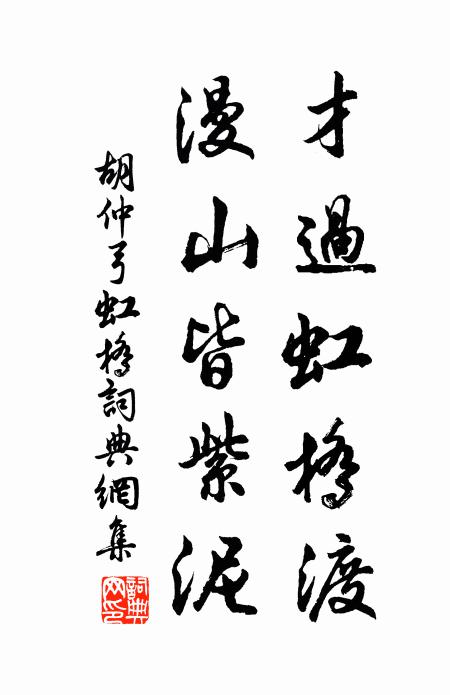 才過虹橋渡
漫山皆紫泥
胡仲弓虹橋詞典網集
詞典網印